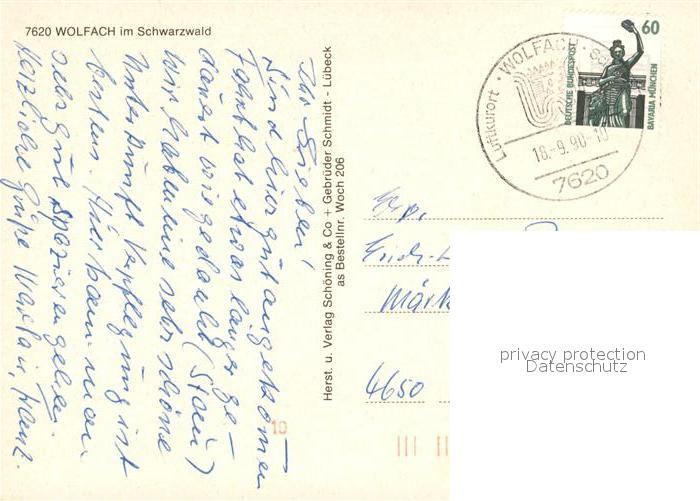 7620 WOLFACH im Schwarzwald
Ihr Lieben!
Sind hier gut angekommen
Fahrt hat etwas länger ge-
dauert wie gedacht (Stau)
Wir haben eine sehr schöne
Unterkunft Verpflegung ist
bestens. Hier kann man
sehr gut spazieren gehen.
Herzliche Grüße
Herst. u. Verlag Schöning & Co + Gebrüder Schmidt - Lübeck
as Bestellnr. Woch 206
Luftkurort · WOLFACH ·
18.-9.90-10
7620
60
DEUTSCHE BUNDESPOST
BAVARIA MÜNCHEN
4650
10
privacy protection
Datenschutz